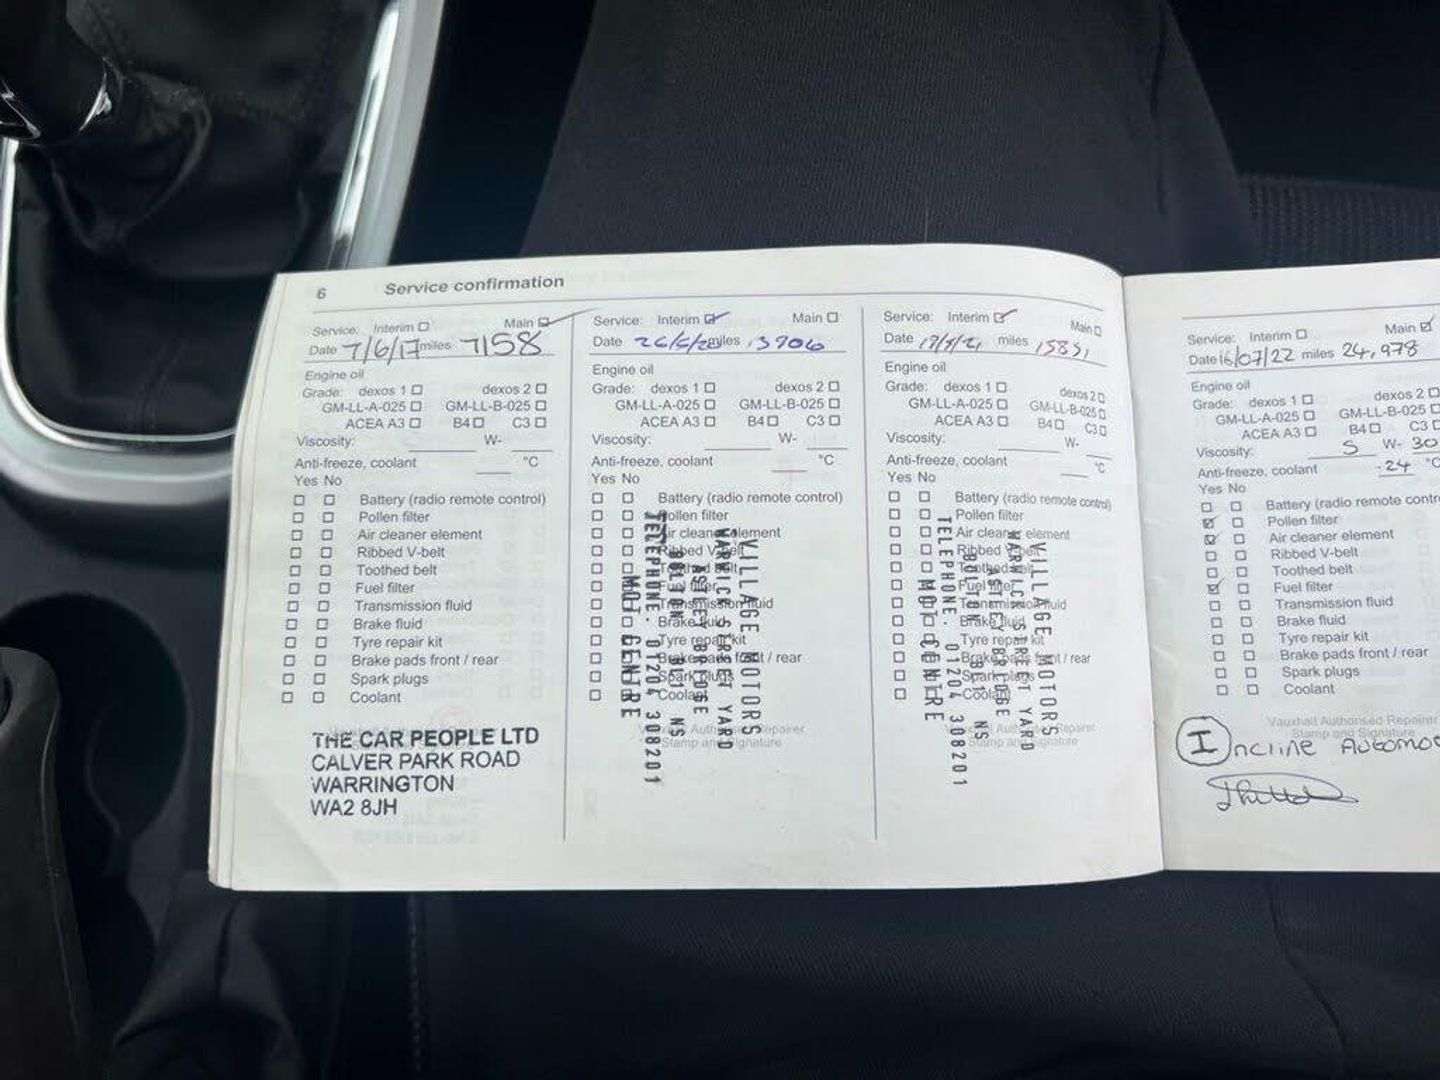 6 Service confirmation
Service: Interim Main
Date 7/6/17 miles 7158
Engine oil
Grade: dexos 1 dexos 2
GM-LL-A-025 GM-LL-B-025
ACEA A3 B4 C3
Viscosity: W-
Anti-freeze, coolant °C
Yes No
Battery (radio remote control)
Pollen filter
Air cleaner element
Ribbed V-belt
Toothed belt
Fuel filter
Transmission fluid
Brake fluid
Tyre repair kit
Brake pads front / rear
Spark plugs
Coolant
THE CAR PEOPLE LTD
CALVER PARK ROAD
WARRINGTON
WA2 8JH
Service: Interim Main
Date miles
Engine oil
Grade: dexos 1 dexos 2
GM-LL-A-025 GM-LL-B-025
ACEA A3 B4 C3
Viscosity: W-
Anti-freeze, coolant °C
Yes No
Battery (radio remote control)
Pollen filter
Air cleaner element
Ribbed V-belt
Toothed belt
Fuel filter
Transmission fluid
Brake fluid
Tyre repair kit
Brake pads front / rear
Spark plugs
Coolant
Vauxhall Authorised Repairer
Stamp and Signature
VILLAGE MOTORS
WARWICK STREET YARD
ASTLEY BRIDGE
BOLTON BL1 NS
TELEPHONE. 01204 308201
MOT CENTRE
Service: Interim Main
Date miles
Engine oil
Grade: dexos 1 dexos 2
GM-LL-A-025 GM-LL-B-025
ACEA A3 B4 C3
Viscosity: W-
Anti-freeze, coolant °C
Yes No
Battery (radio remote control)
Pollen filter
Air cleaner element
Ribbed V-belt
Toothed belt
Fuel filter
Transmission fluid
Brake fluid
Tyre repair kit
Brake pads front / rear
Spark plugs
Coolant
Vauxhall Authorised Repairer
Stamp and Signature
VILLAGE MOTORS
WARWICK STREET YARD
ASTLEY BRIDGE
BOLTON NS
TELEPHONE. 01204 308201
MOT CENTRE
Service: Interim Main
Date 16/07/22 miles 24,978
Engine oil
Grade: dexos 1 dexos 2
GM-LL-A-025 GM-LL-B-025
ACEA A3 B4 C3
Viscosity: 5 W- 30
Anti-freeze, coolant -24 °C
Yes No
Battery (radio remote contr
Pollen filter
Air cleaner element
Ribbed V-belt
Toothed belt
Fuel filter
Transmission fluid
Brake fluid
Tyre repair kit
Brake pads front / rear
Spark plugs
Coolant
Vauxhall Authorised Repairer
Stamp and Signature
Incline Automo